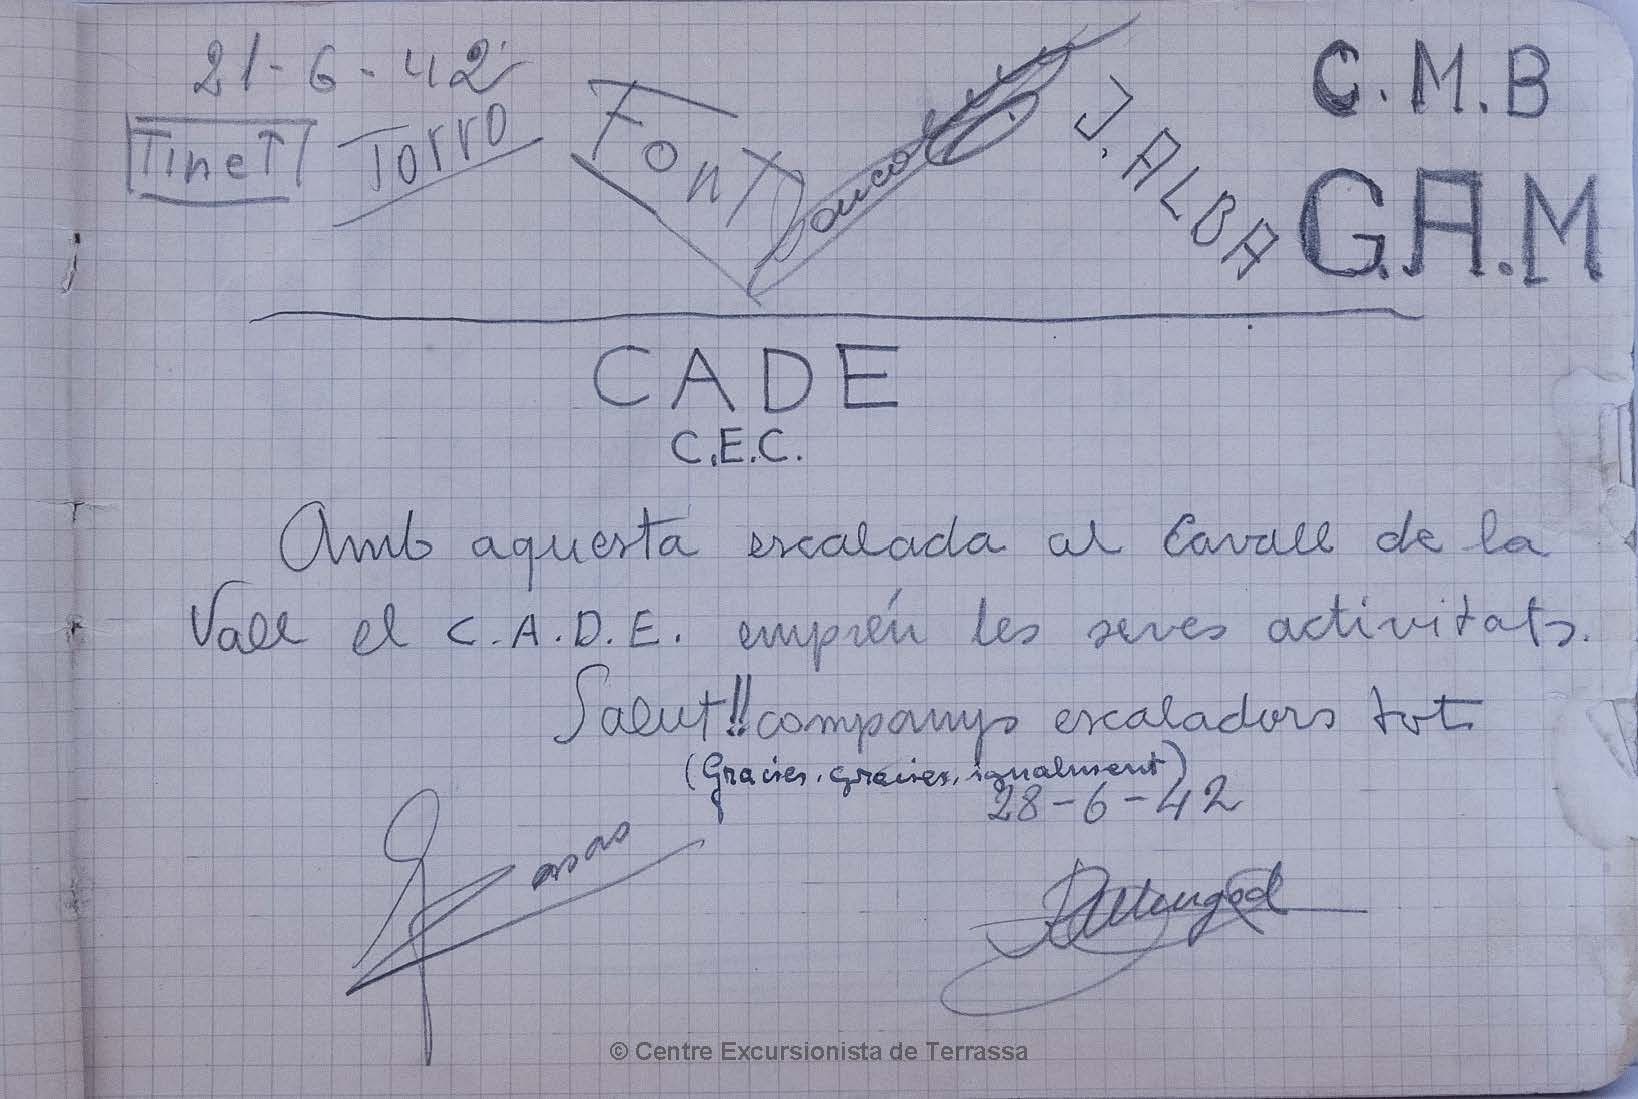 21-6-42
TineT Torro FonT J. ALBA C.M.B
G.A.M
CADE
C.E.C.
Amb aquesta escalada al Cavall de la
Vall el C.A.D.E. emprén les seves activitats.
Salut!! companys escaladors tots
(Gracies, gracies, igualment)
28-6-42
Casas
© Centre Excursionista de Terrassa